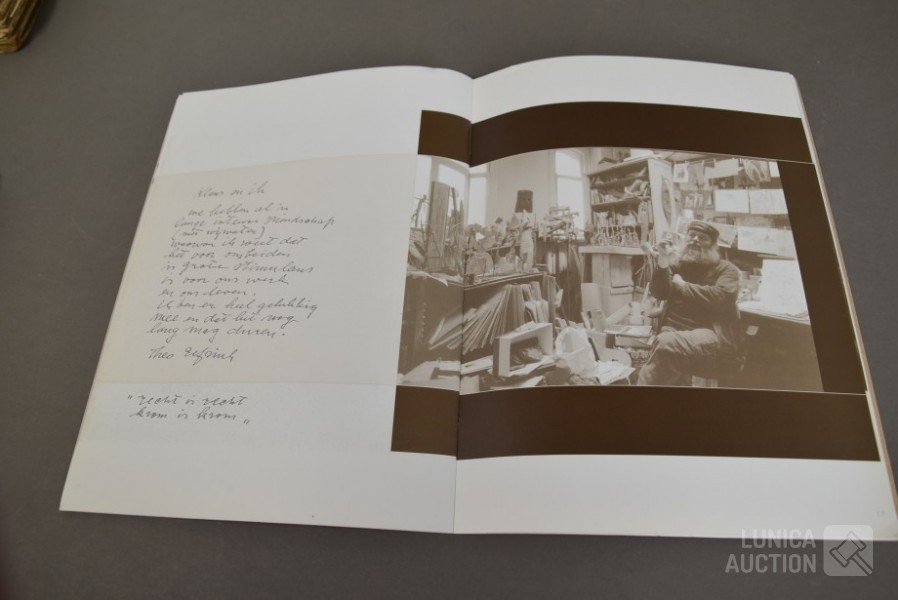 Klaas en ik
we hebben al 'n
lange intense vriendschap
(met wijwater)
waarvan ik weet dat
het voor ons beiden
in grote
is voor ons werk
en ons leven.
ik ben er heel gelukkig
mee en dat het nog
lang mag duren.
Theo
"recht is recht
krom is krom"
LUNICA
AUCTION